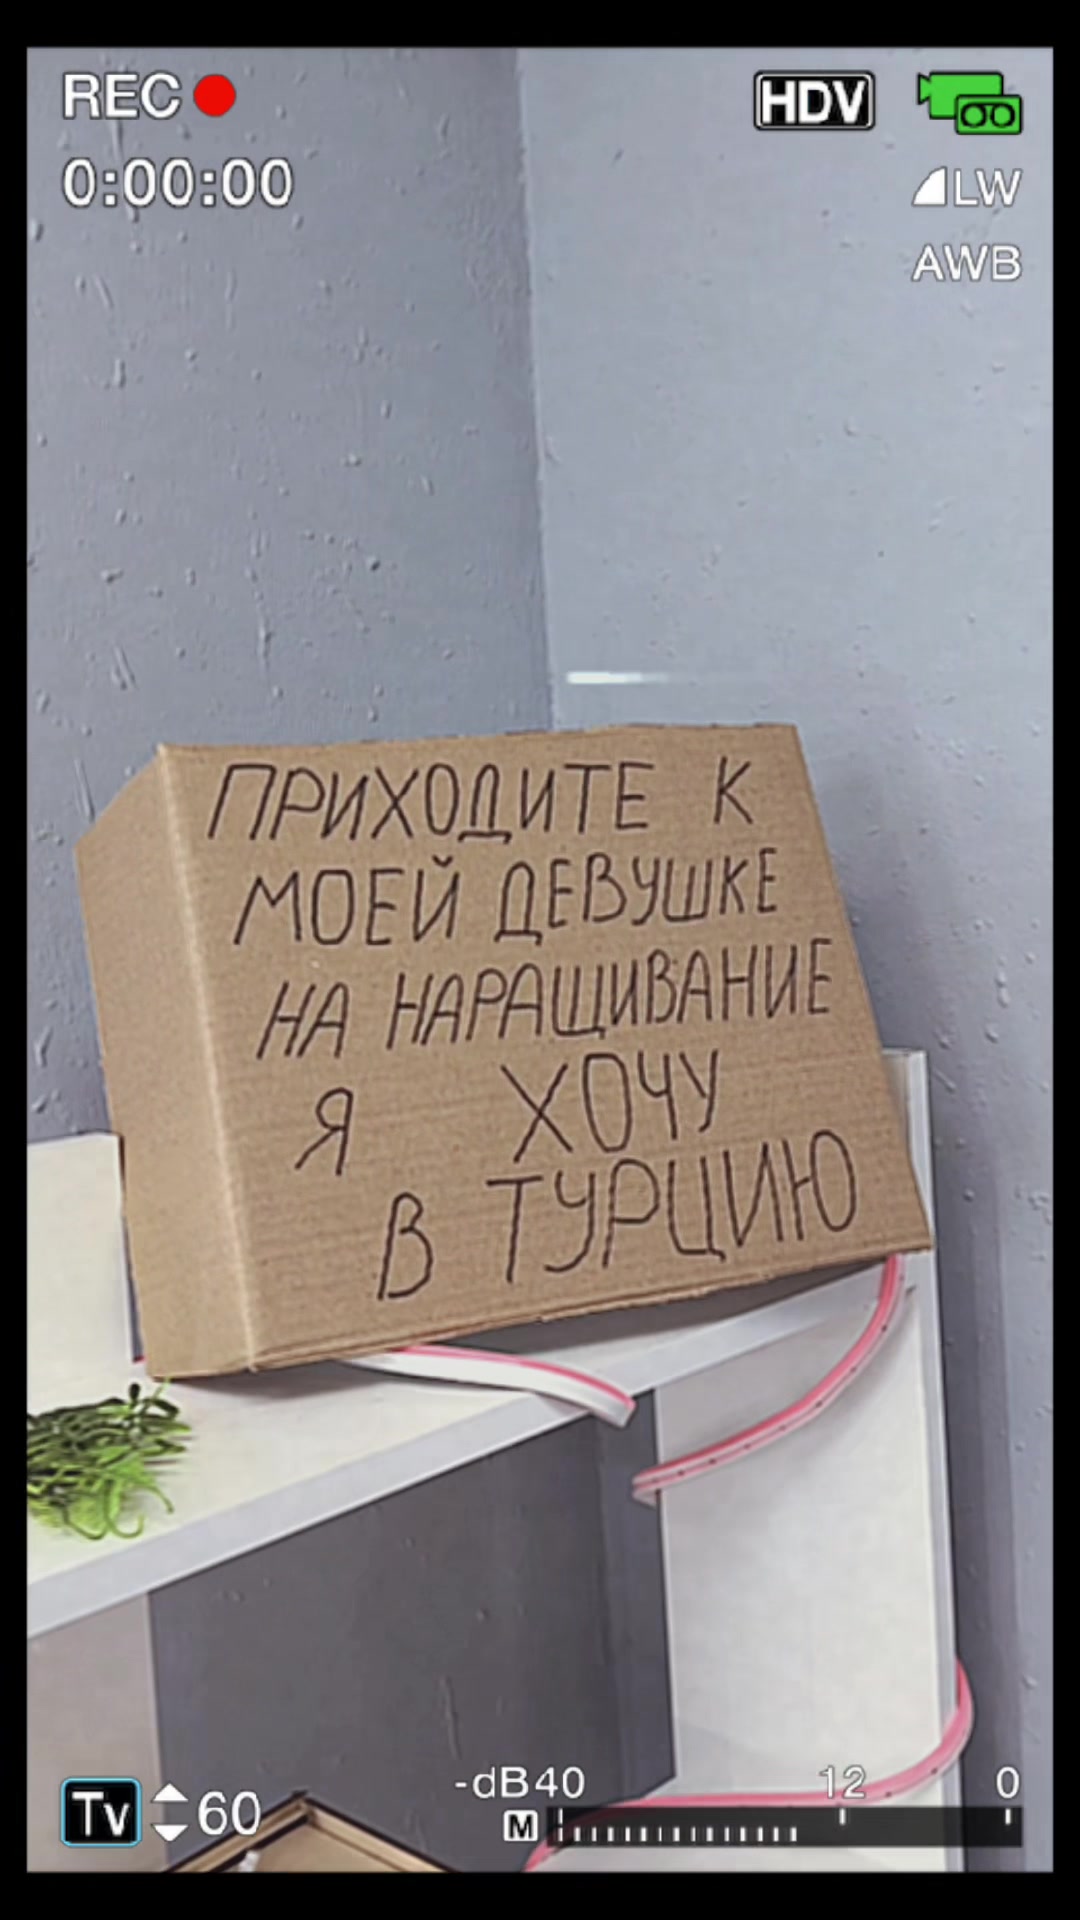 REC
HDV
0:00:00
LW
AWB
ПРИХОДИТЕ К
МОЕЙ ДЕВУШКЕ
НА НАРАЩИВАНИЕ
Я ХОЧУ
В ТУРЦИЮ
-dB40 12 0
Tv 60 M